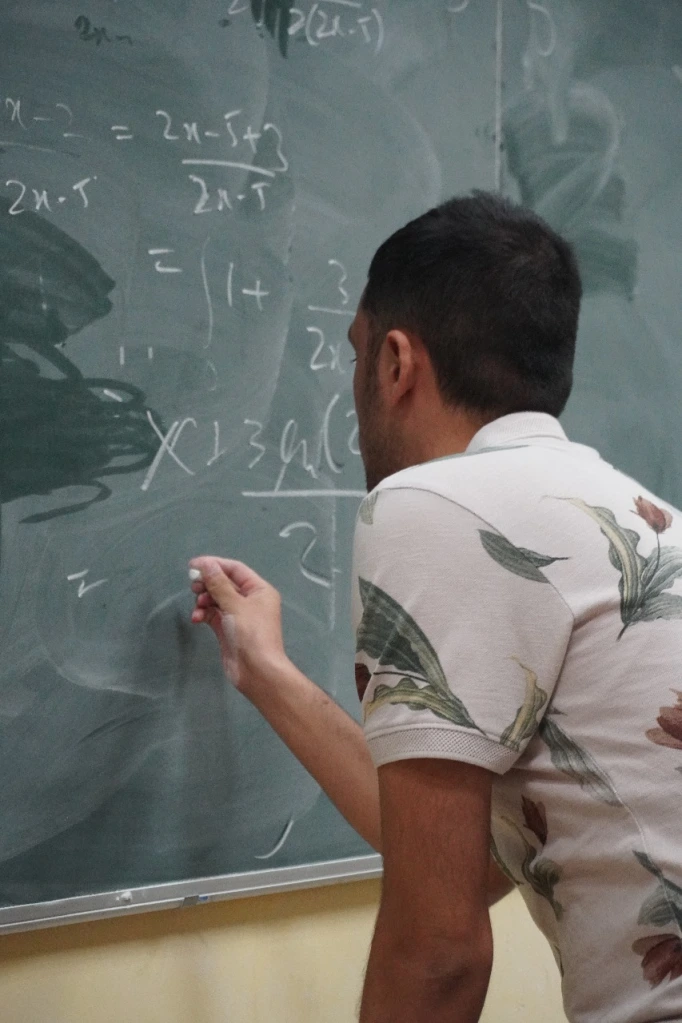 2(2x-5)
x-2 / 2x-5 = (2x-5+3) / (2x-5)
= ∫ 1 + 3 / 2x
x + 3 ln(2 / 2
=